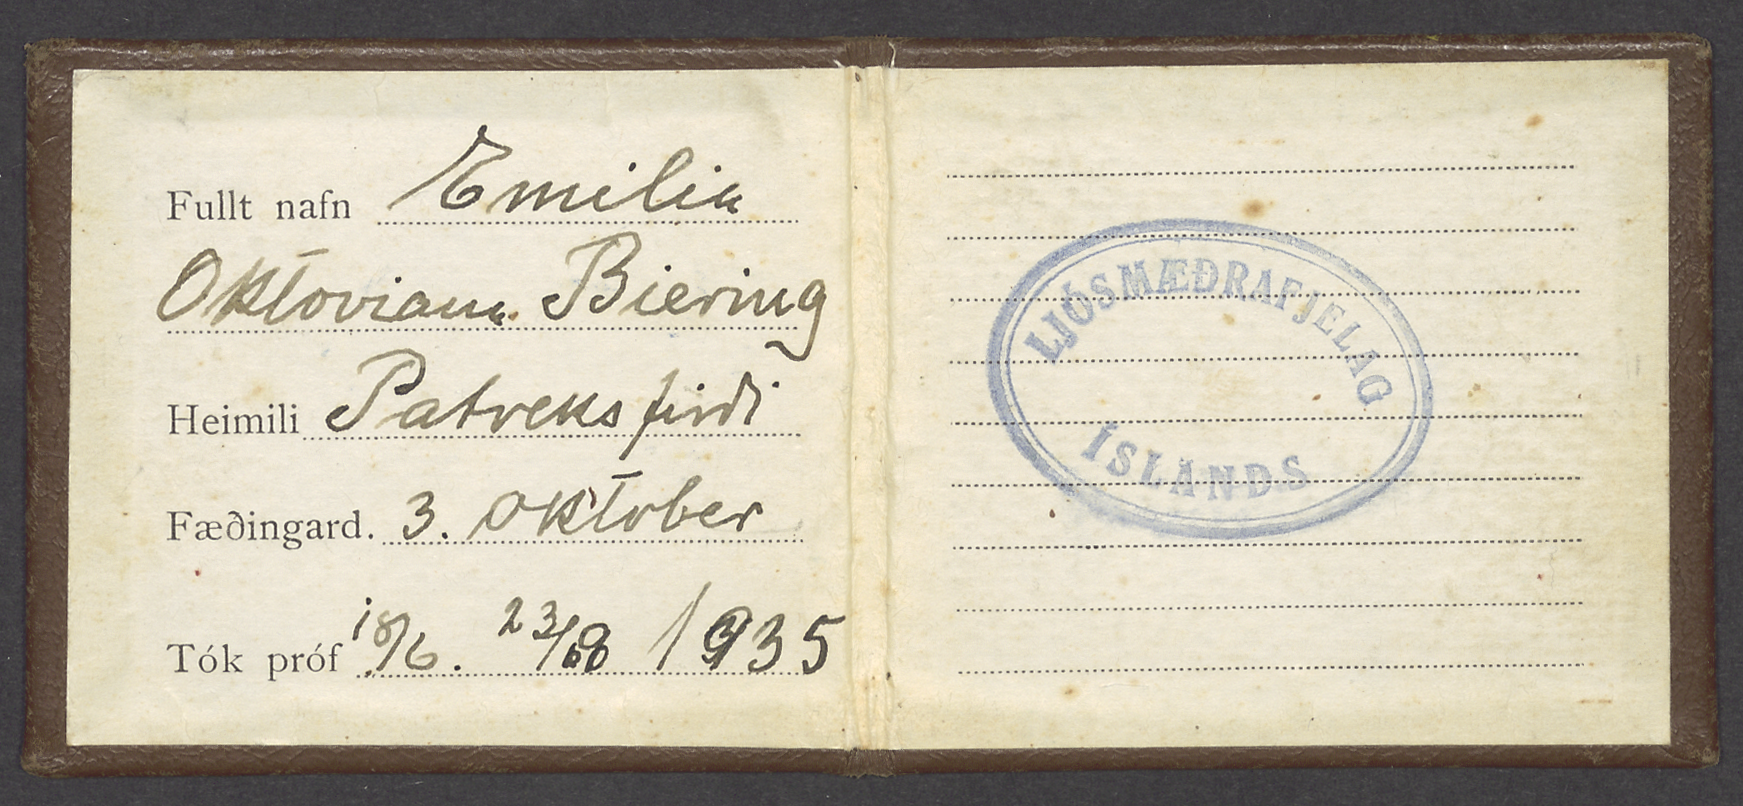 Fullt nafn Emilia
Oktoviana Biering
Heimili Patreksfirði
Fæðingard. 3. október
Tók próf 18/6. 1935
LJÓSMÆÐRAFJELAG
ÍSLANDS